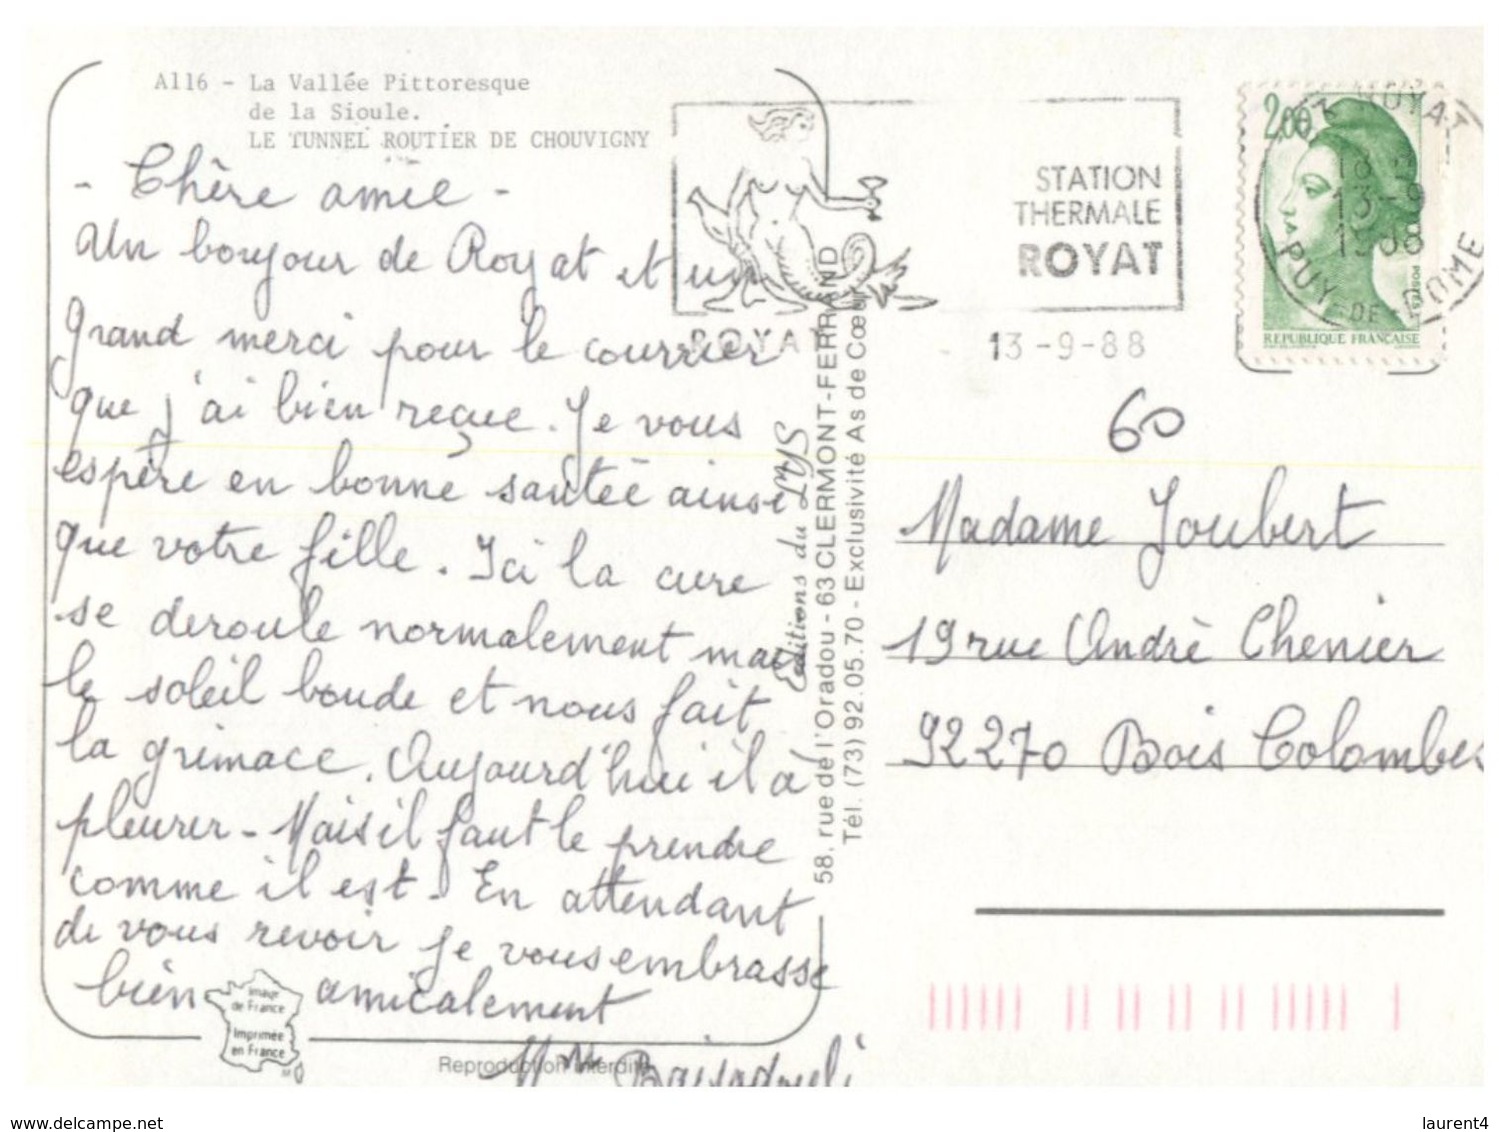 A116 - La Vallée Pittoresque
de la Sioule.
LE TUNNEL ROUTIER DE CHOUVIGNY
- Chère amie -
Un bonjour de Royat et un
grand merci pour le courrier
que j'ai bien reçue. Je vous
espère en bonne santée ainsi
que votre fille. Ici la cure
se deroule normalement mais
le soleil boude et nous fait
la grimace. Aujourd'hui il à
pleurer - Mais il faut le prendre
comme il est. En attendant
de vous revoir je vous embrasse
bien amicalement
Mme
Image
de France
Imprimée
en France
Reproduction interdite
Editions du LYS
58, rue de l'Oradou - 63 CLERMONT-FERRAND
Tél. (73) 92.05.70 - Exclusivité As de Cœur
ROYAT
STATION
THERMALE
ROYAT
13-9-88
2,00
REPUBLIQUE FRANÇAISE
POSTES
63 ROYAT
18 H
13-9
1988
PUY-DE DOME
60
Madame Joubert
19 rue André Chenier
92270 Bois Colombes
www.delcampe.net
laurent4